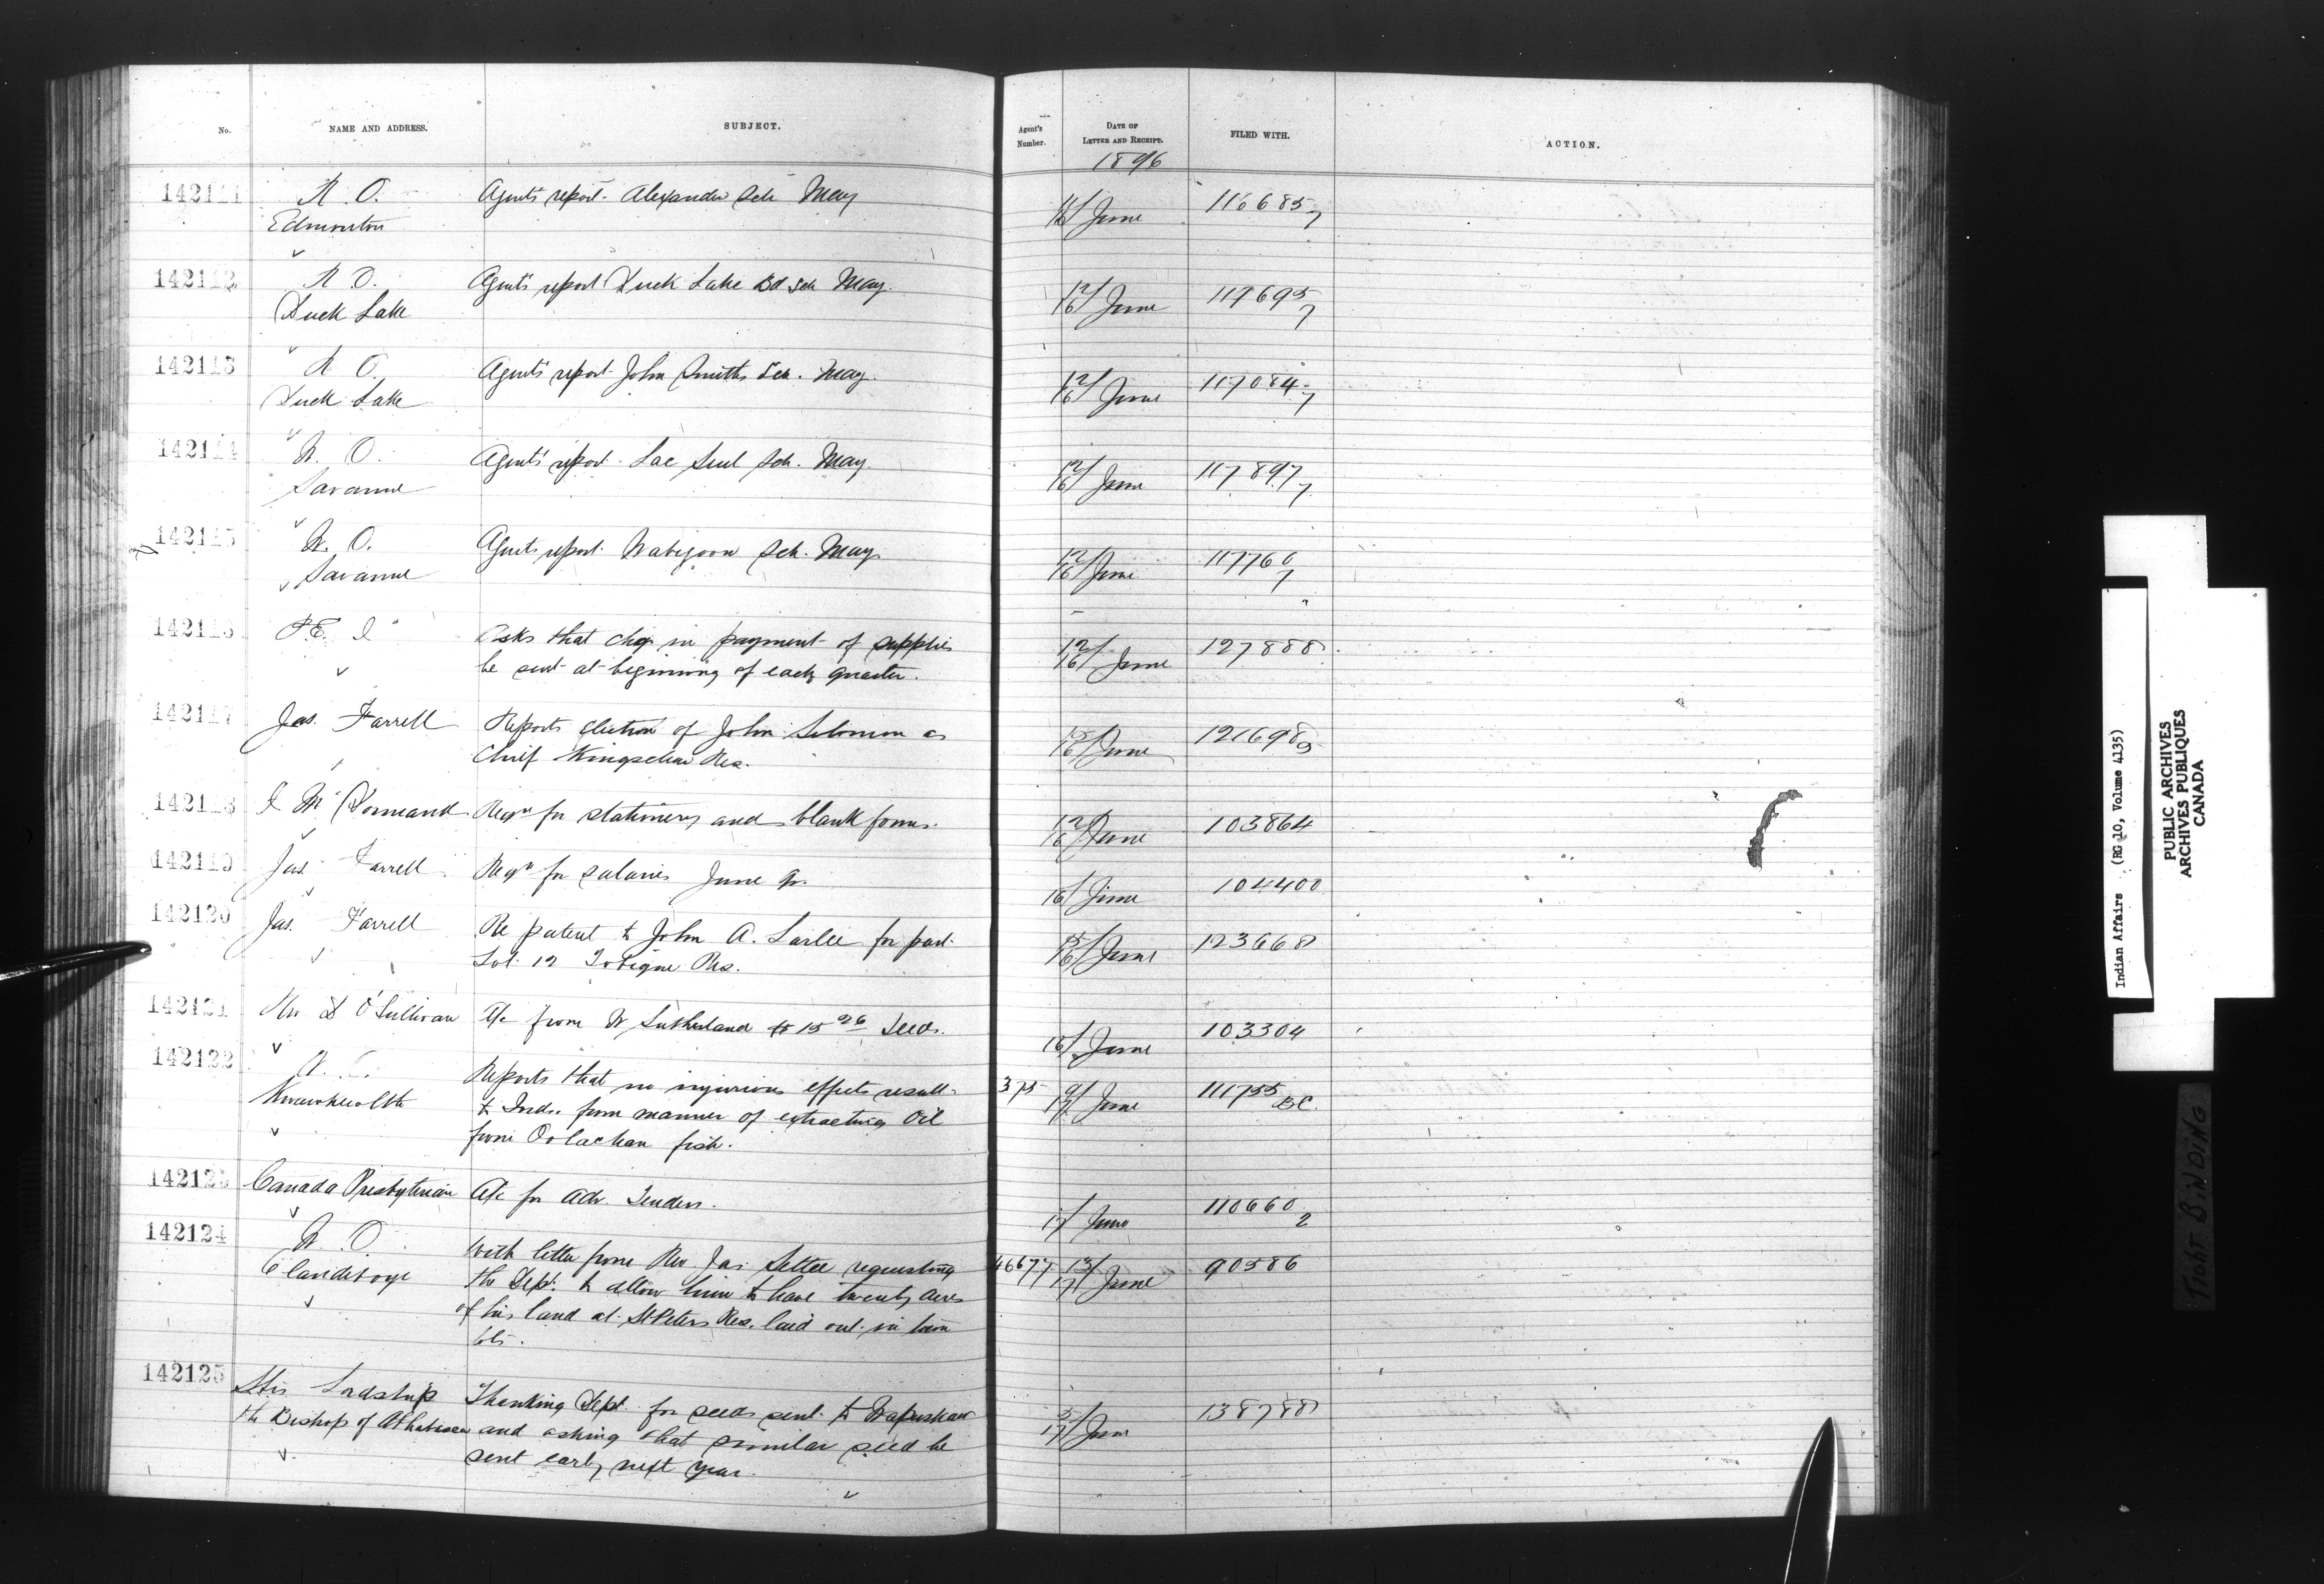 No. NAME AND ADDRESS. SUBJECT. Agent's Number. DATE OF LETTER AND RECEIPT. FILED WITH. ACTION.
1896
142111 R. O. Agent's report - Alexander Sch May 16/ June 116685
Edmonton 7
142112 R. O. Agent's report Duck Lake Bd Sch May. 12/16/ June 119695
Duck Lake 7
142113 R. O. Agent's report John Smiths Sch. May. 12/16/ June 117084
Duck Lake 7
142114 W. O. Agent's report Lac Seul Sch. May. 12/16/ June 117897
Savanne 7
142115 W. O. Agent's report Wabigoon Sch. May. 12/16/ June 117760
Savanne 7
142116 P.E.I Asks that chq in payment of supplies 12/16/ June 127888
be sent at beginning of each quarter.
142117 Jas. Farrell Reports election of John Solomon as 15/16/ June 121698
Chief Kingsclear Res.
142118 Mc Dormand Reqn for stationery and blank forms. 12/16/ June 103864
142119 Jas. Farrell Reqn for salaries June qr. 16/ June 104400
142120 Jas. Farrell Re patent to John A. Larlee for part 15/16/ June 123668
Lot 12 Tobique Res.
142121 D O'Sullivan A/c from W Sutherland $15 26 Seeds. 16/ June 103304
142122 Reports that no injurious effects result 375 9/17/ June 111755
Kwawkewlth to Inds. from manner of extracting Oil BC.
from Oolachan fish.
142123 Canada Presbyterian A/c for adv. Tenders. 17/ June 110660
2
142124 W. O. With letter from Rev Jas Settee requesting 46677 13/17/ June 90586
Clandeboye the Dept. to allow him to have twenty acres
of his land at St Peters Res. laid out in town
lots.
142125 His Lordship Thanking Dept. for seeds sent to Wapuskaw 5/17/ June 138788
the Bishop of Athabasca and asking that similar seed be
sent early next year.
Indian Affairs (RG 10, Volume 4135)
PUBLIC ARCHIVES
ARCHIVES PUBLIQUES
CANADA
TIGHT BINDING